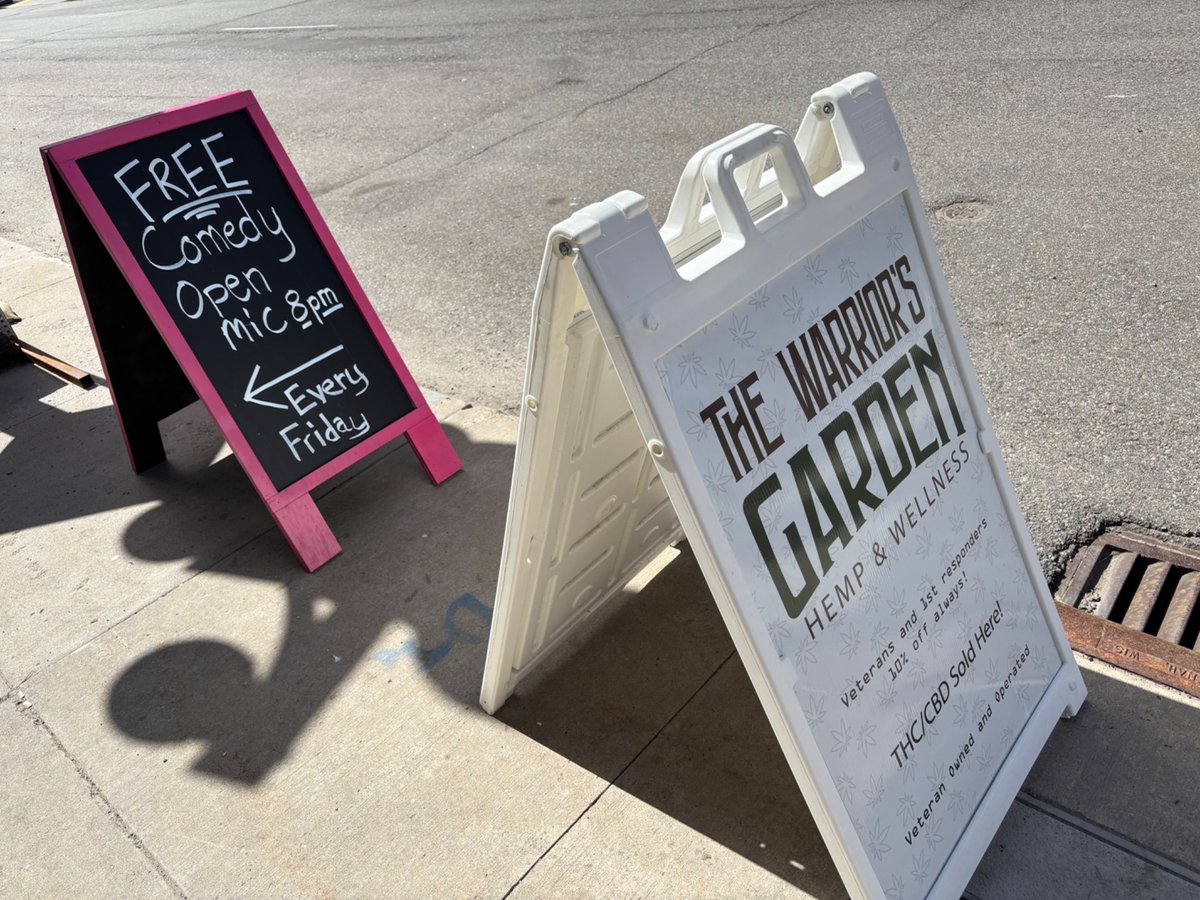 FREE
Comedy
Open
mic 8pm
Every
Friday
THE WARRIOR'S
GARDEN
HEMP & WELLNESS
Veterans and 1st responders
10% off always!
THC/CBD Sold Here!
Veteran Owned and Operated